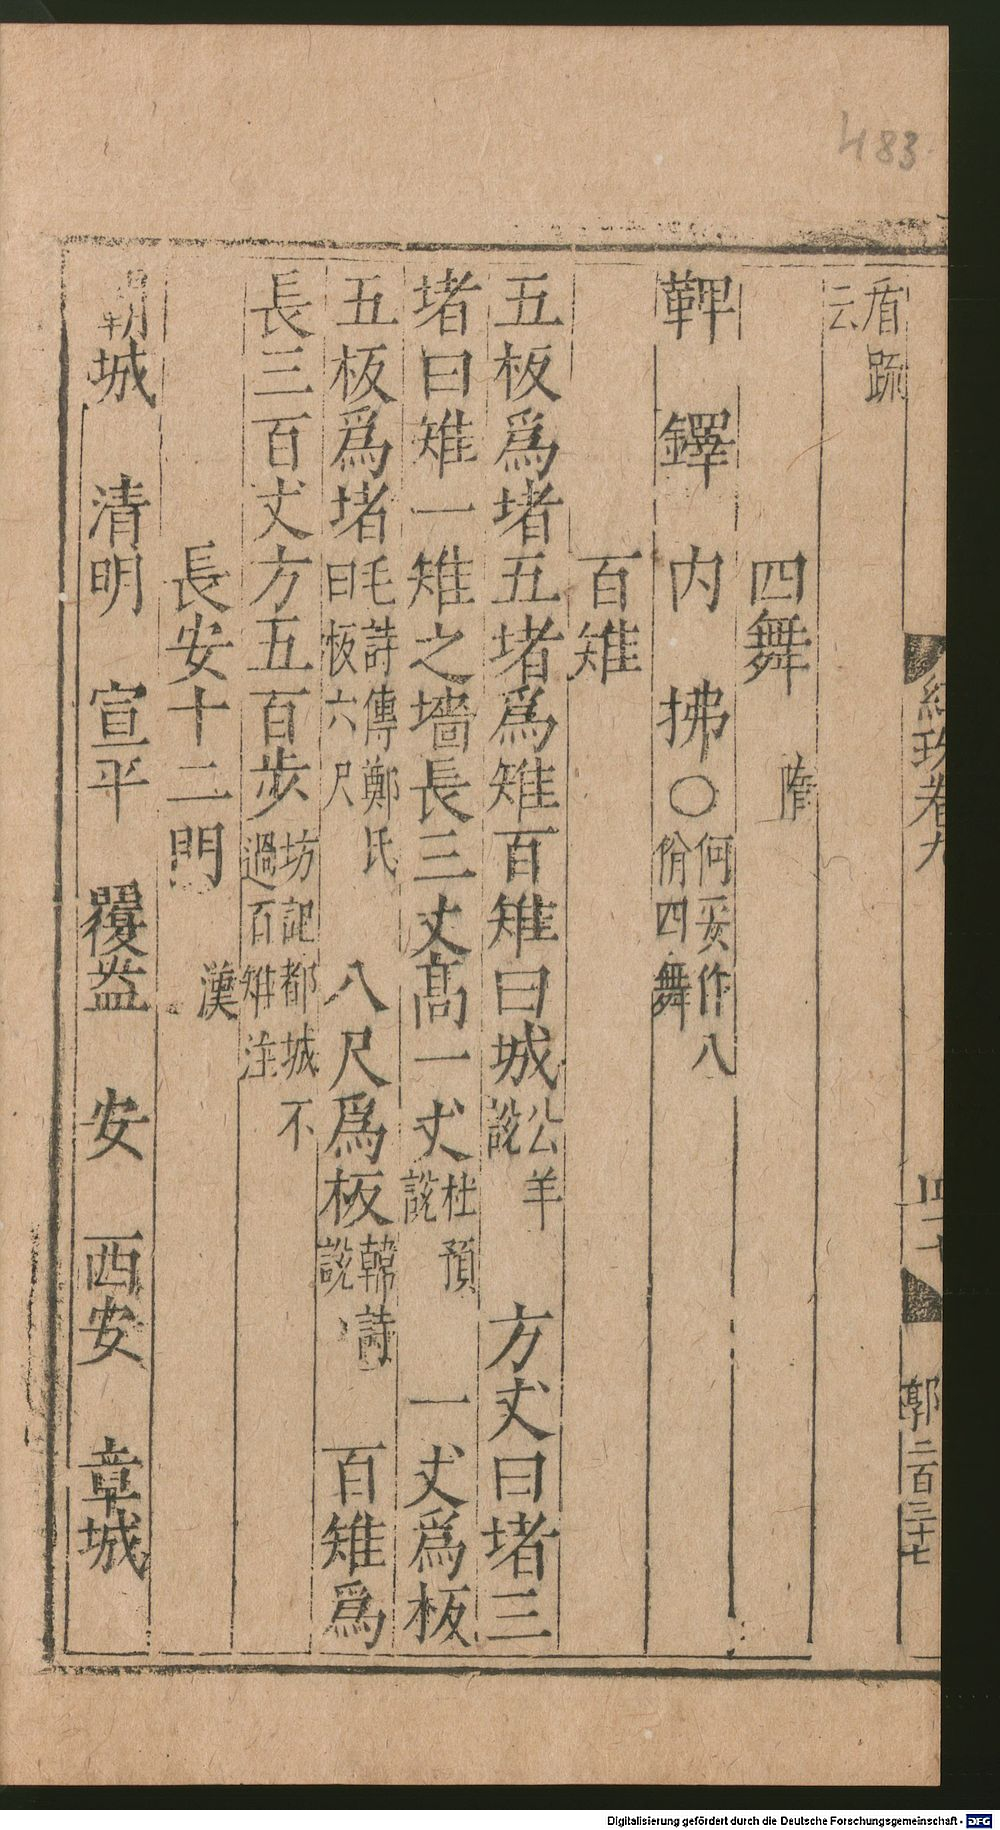 483
盾疏
云
四舞 隋
鞞 鐸 内 拂 ○ 何妥作八
佾四舞
百雉
五板爲堵五堵爲雉百雉曰城 公羊
說 方丈曰堵三
堵曰雉一雉之墻長三丈髙一丈 杜預
說 一丈爲板
五板爲堵 毛詩傳鄭氏
曰板六尺 八尺爲板 韓詩
說 百雉爲
長三百丈方五百步 坊記都城不
過百雉注
長安十二門 漢
霸城 清明 宣平 覆盎 安 西安 章城
卷九
郭 二百三十七
Digitalisierung gefördert durch die Deutsche Forschungsgemeinschaft - DFG